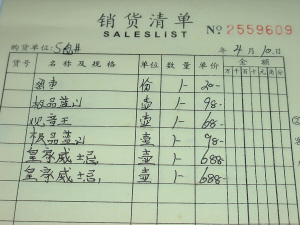 销货清单
SALESLIST
No 2559609
购货单位: 5包# 年 4 月 10 日
货号 名称及规格 单位 数量 单价 金额
万 千 百 十 元 角 分
份 1- 20-
极品蓝山 壶 1- 98-
观音王 壶 1- 68-
极品蓝山 壶 1- 98-
皇家威士忌 壶 1- 688-
皇家威士忌 壶 1- 688-